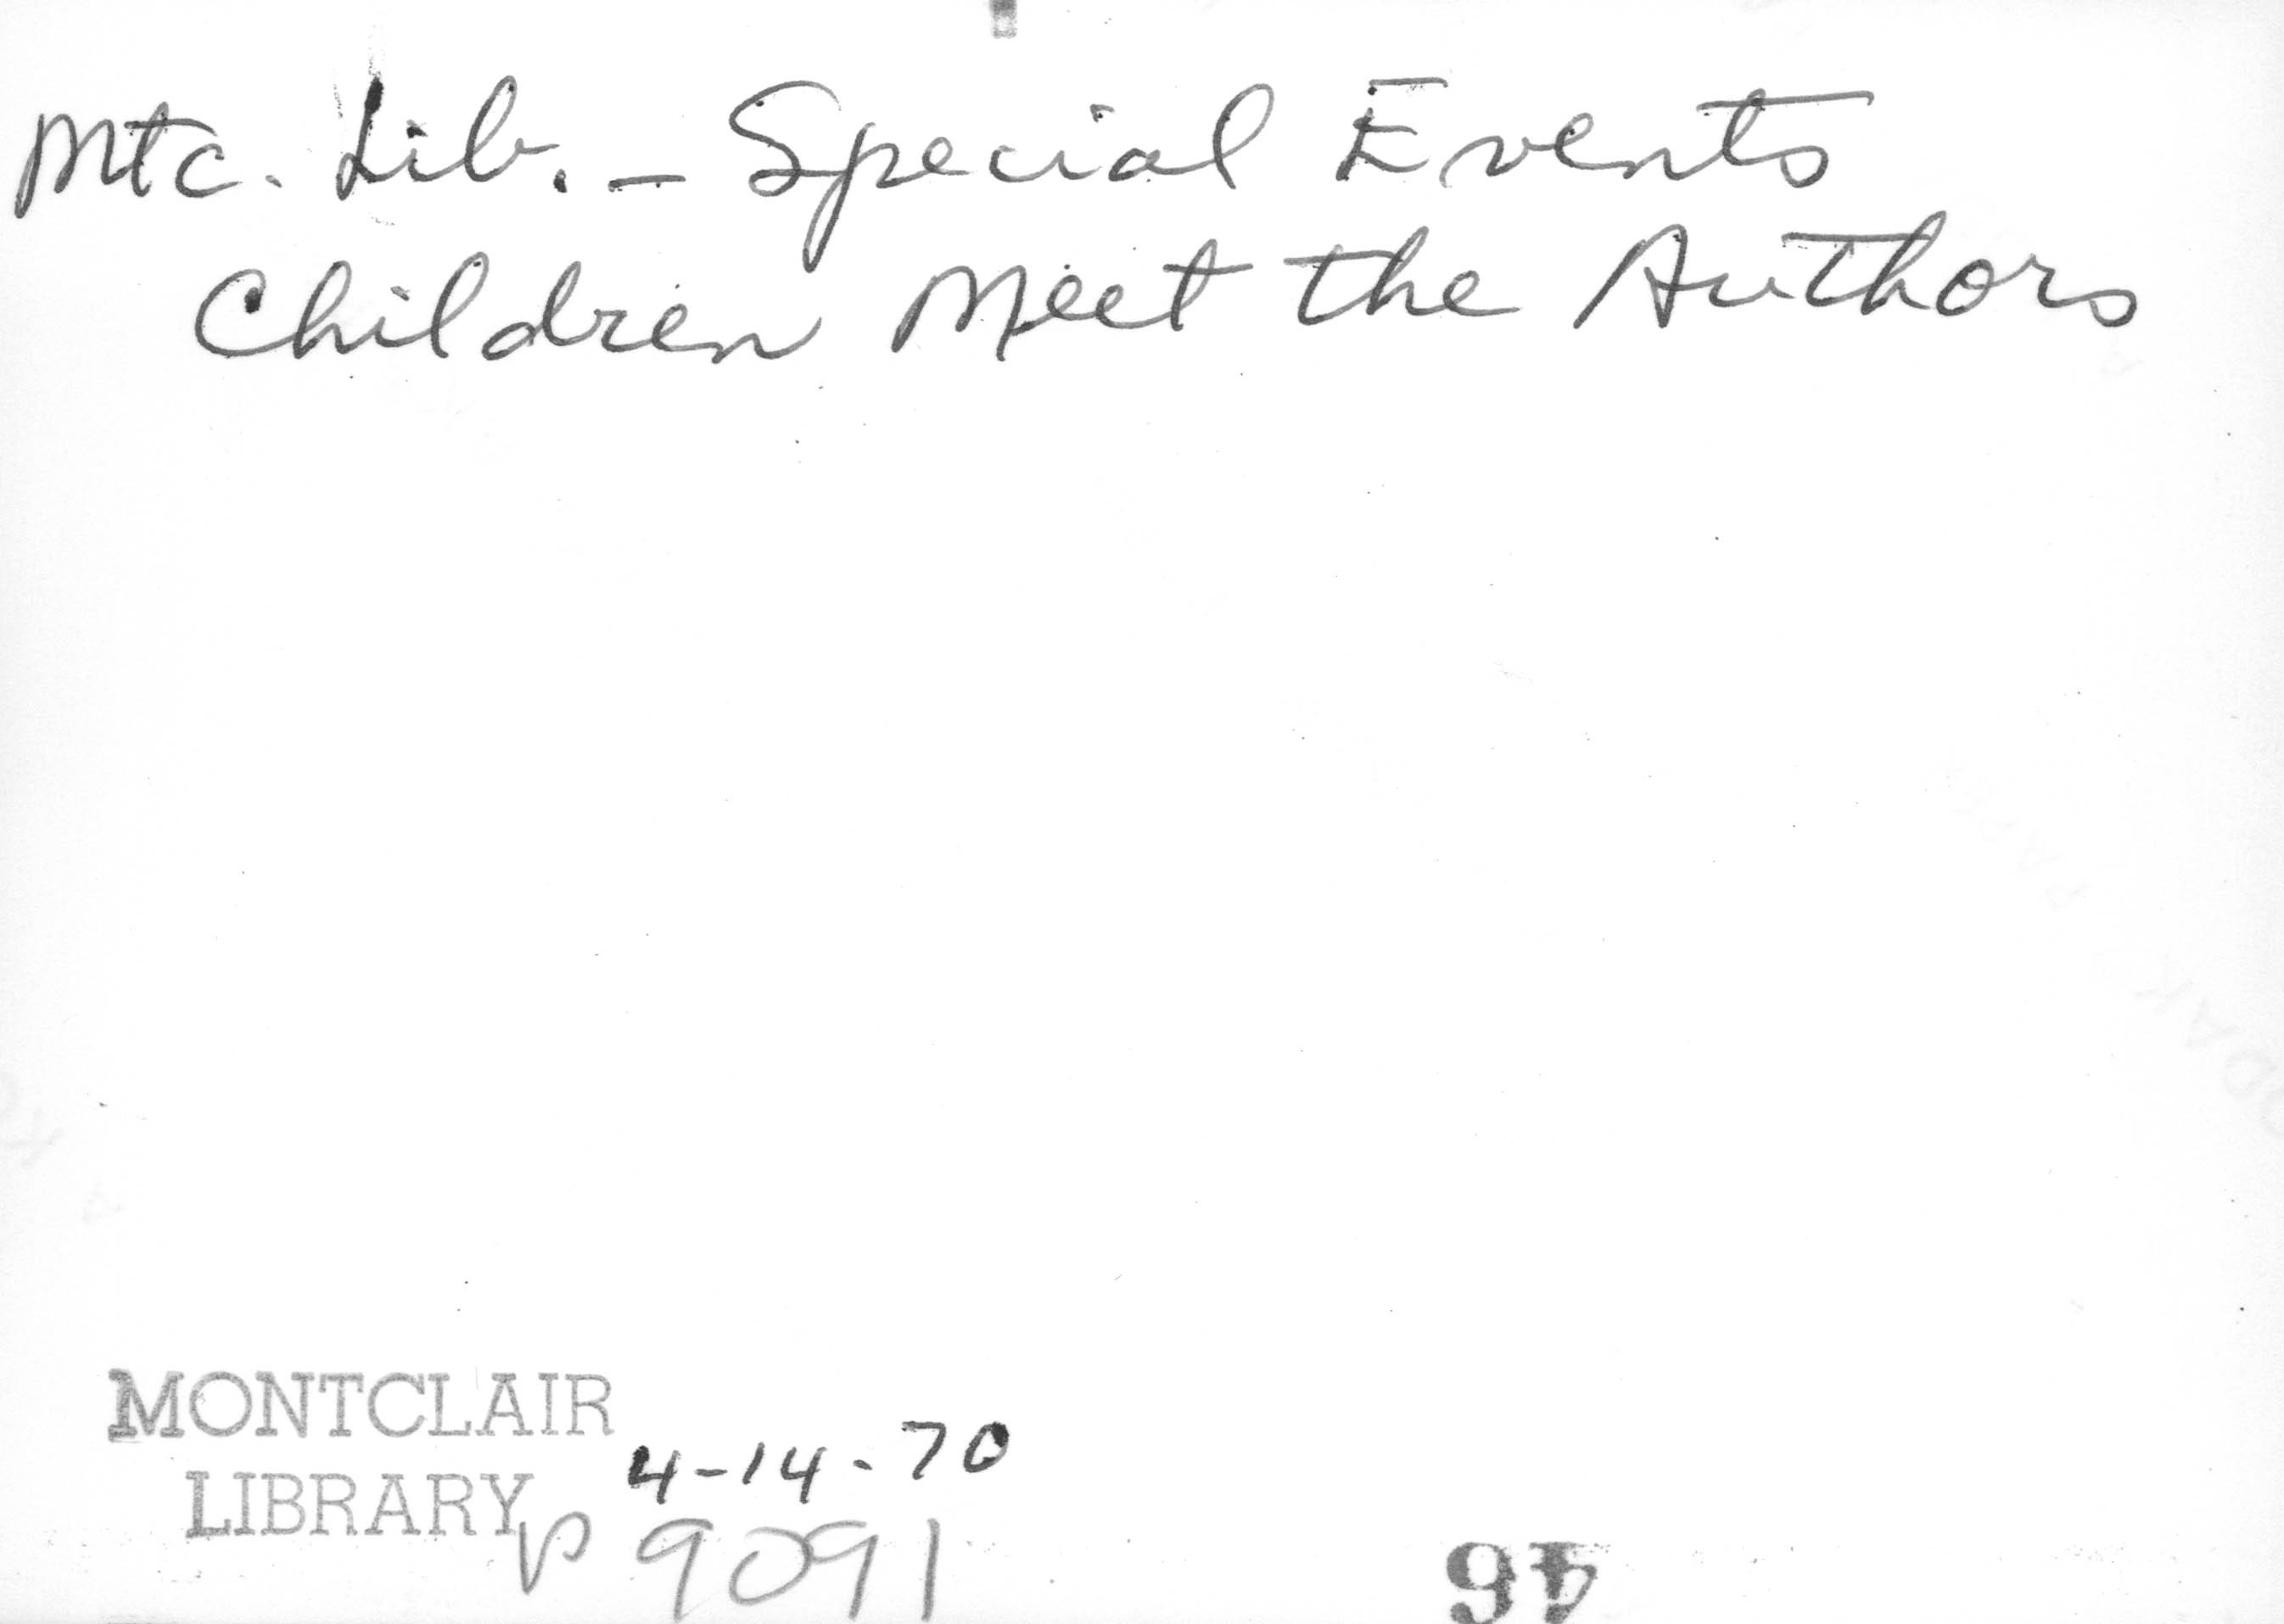 Mtc. Lib. - Special Events
Children Meet the Authors
MONTCLAIR
LIBRARY
4-14-70
P 9091